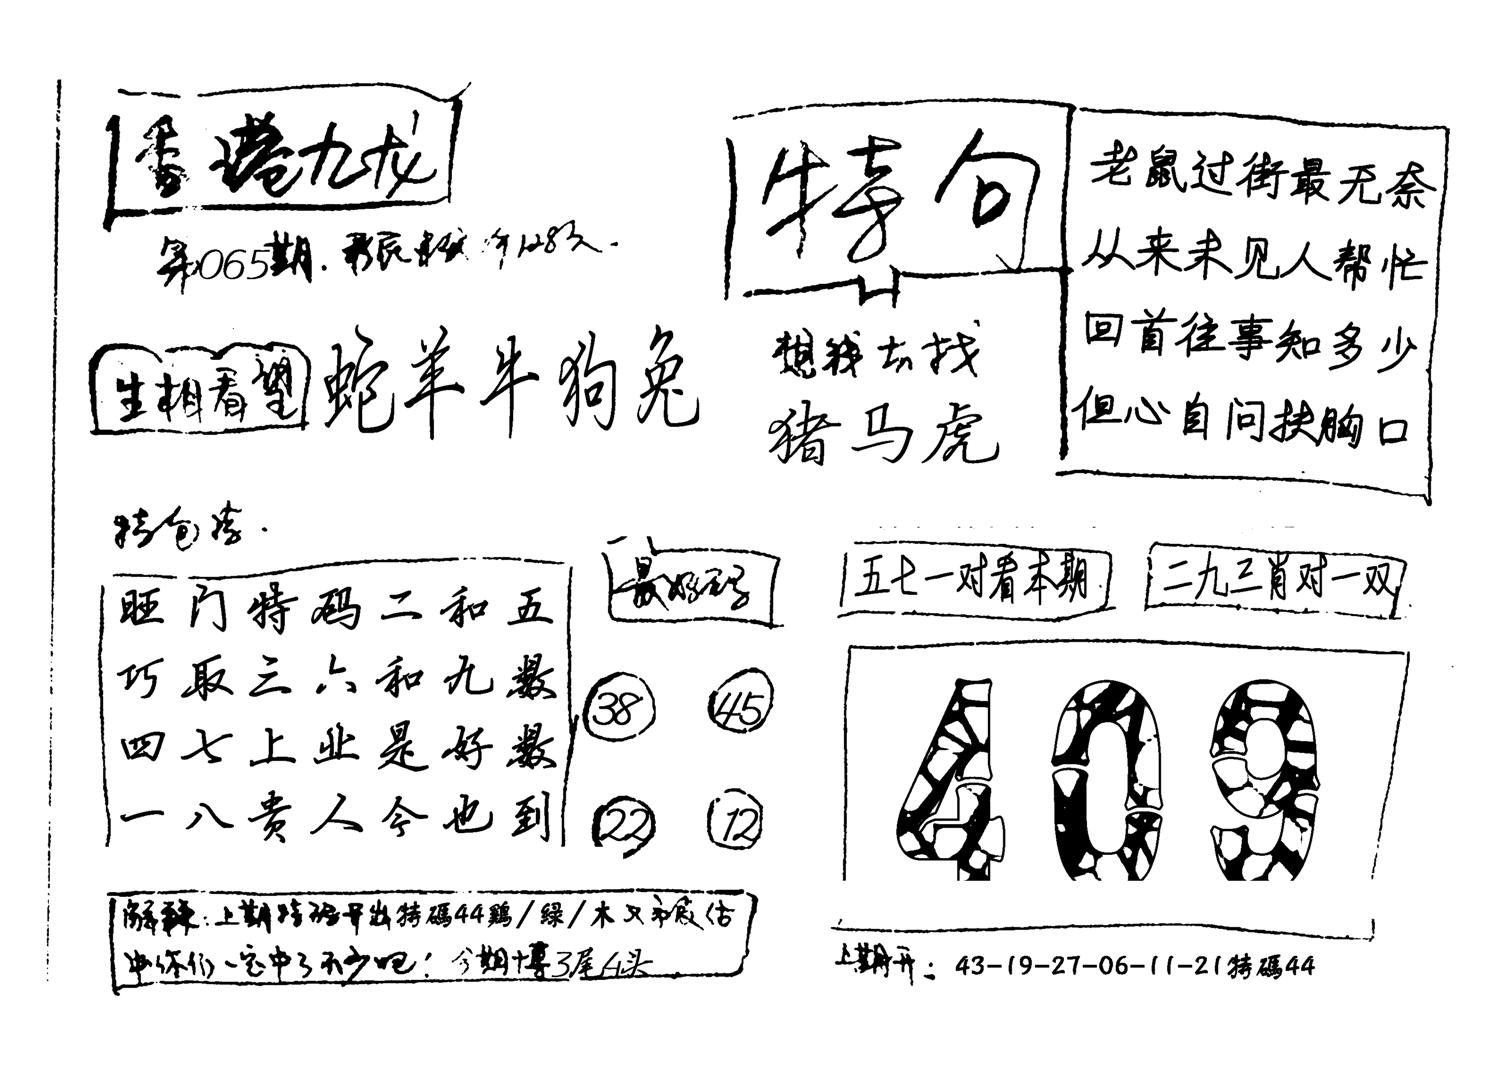 香港九龙
第065期.
生相看望
蛇羊牛狗兔
特句
想我去找
猪马虎
老鼠过街最无奈
从来未见人帮忙
回首往事知多少
但心自问扶胸口
特包袋.
旺门特码二和五
巧取三六和九数
四七上业是好数
一八贵人今也到
最好码
38 45
22 12
五七一对看本期
二九三肖对一双
409
上期开: 43-19-27-06-11-21特碼44
上期特码开出特碼44鷄/绿/木
你们一定中了不少吧! 今期博3尾